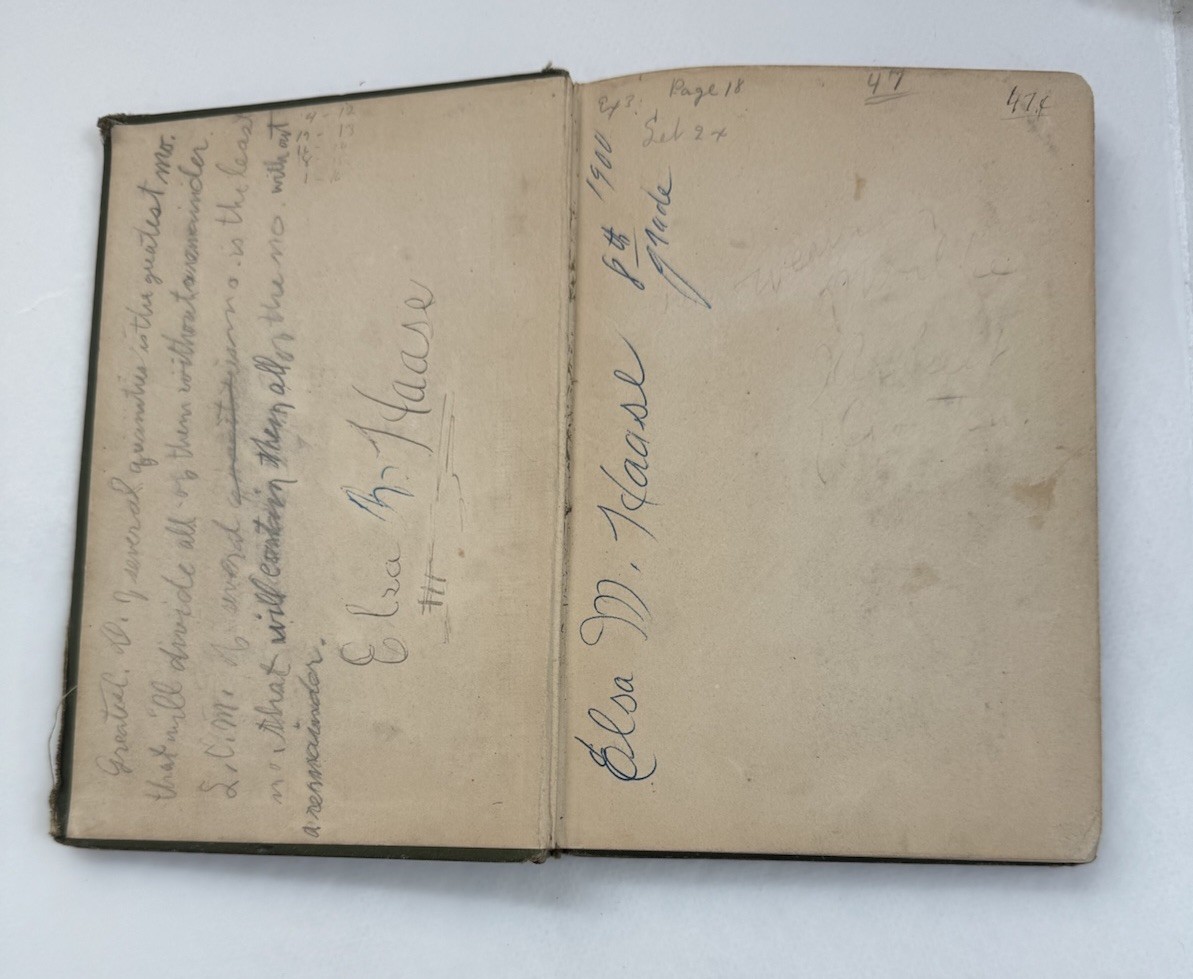 Greatest. D. of several quantities is the greatest no.
that will divide all of them without a remainder.
L.C.M. of several quantities no. is the least
no. that will contain them all of the no. without
a remainder.
4 - 12
Elsa M. Haase
Ex 3. Page 18
Set 2 x
47
47¢
Elsa M. Haase 8th 1900
grade